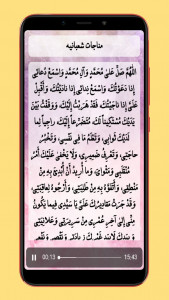 مناجات شعبانیه
اَللّهُمَّ صَلِّ عَلى مُحَمَّدٍ وَآلِ مُحَمَّدٍ وَاسْمَعْ دُعائي
اِذا دَعَوْتُكَ وَاسْمَعْ نِدائي اِذا نادَيْتُكَ وَاَقْبِلْ
عَليَّ اِذا ناجَيْتُكَ فَقَدْ هَرَبْتُ اِلَيْكَ وَوَقَفْتُ بَيْنَ
يَدَيكَ مُسْتَكيناً لَكَ مُتَضَرِّعاً اِلَيْكَ راجِياً لِما
لَدَيْكَ ثَوابي، وَتَعْلَمُ ما في نَفْسي، وَتَخْبُرُ
حاجَتي، وَتَعْرِفُ ضَميري، وَلا يَخْفى عَلَيْكَ اَمْرُ
مُنْقَلَبي وَمَثْوايَ، وَما اُريدُ اَنْ اُبْدِئَ بِهِ مِنْ
مَنْطِقي، واَتَفَوَّهُ بِهِ مِنْ طَلِبَتي، وَاَرْجُوهُ لِعاقِبَتي،
وَقَدْ جَرَتْ مَقاديرُكَ عَليَّ يا سَيِّدي فيما يَكُونُ
مِنّي اِلى آخِرِ عُمْري مِنْ سَريرَتي وَعَلانِيَتي
وَبِيَدِكَ لا بِيَدِ غَيْرِكَ زِيادَتي وَنَقْصي
00:13
15:43